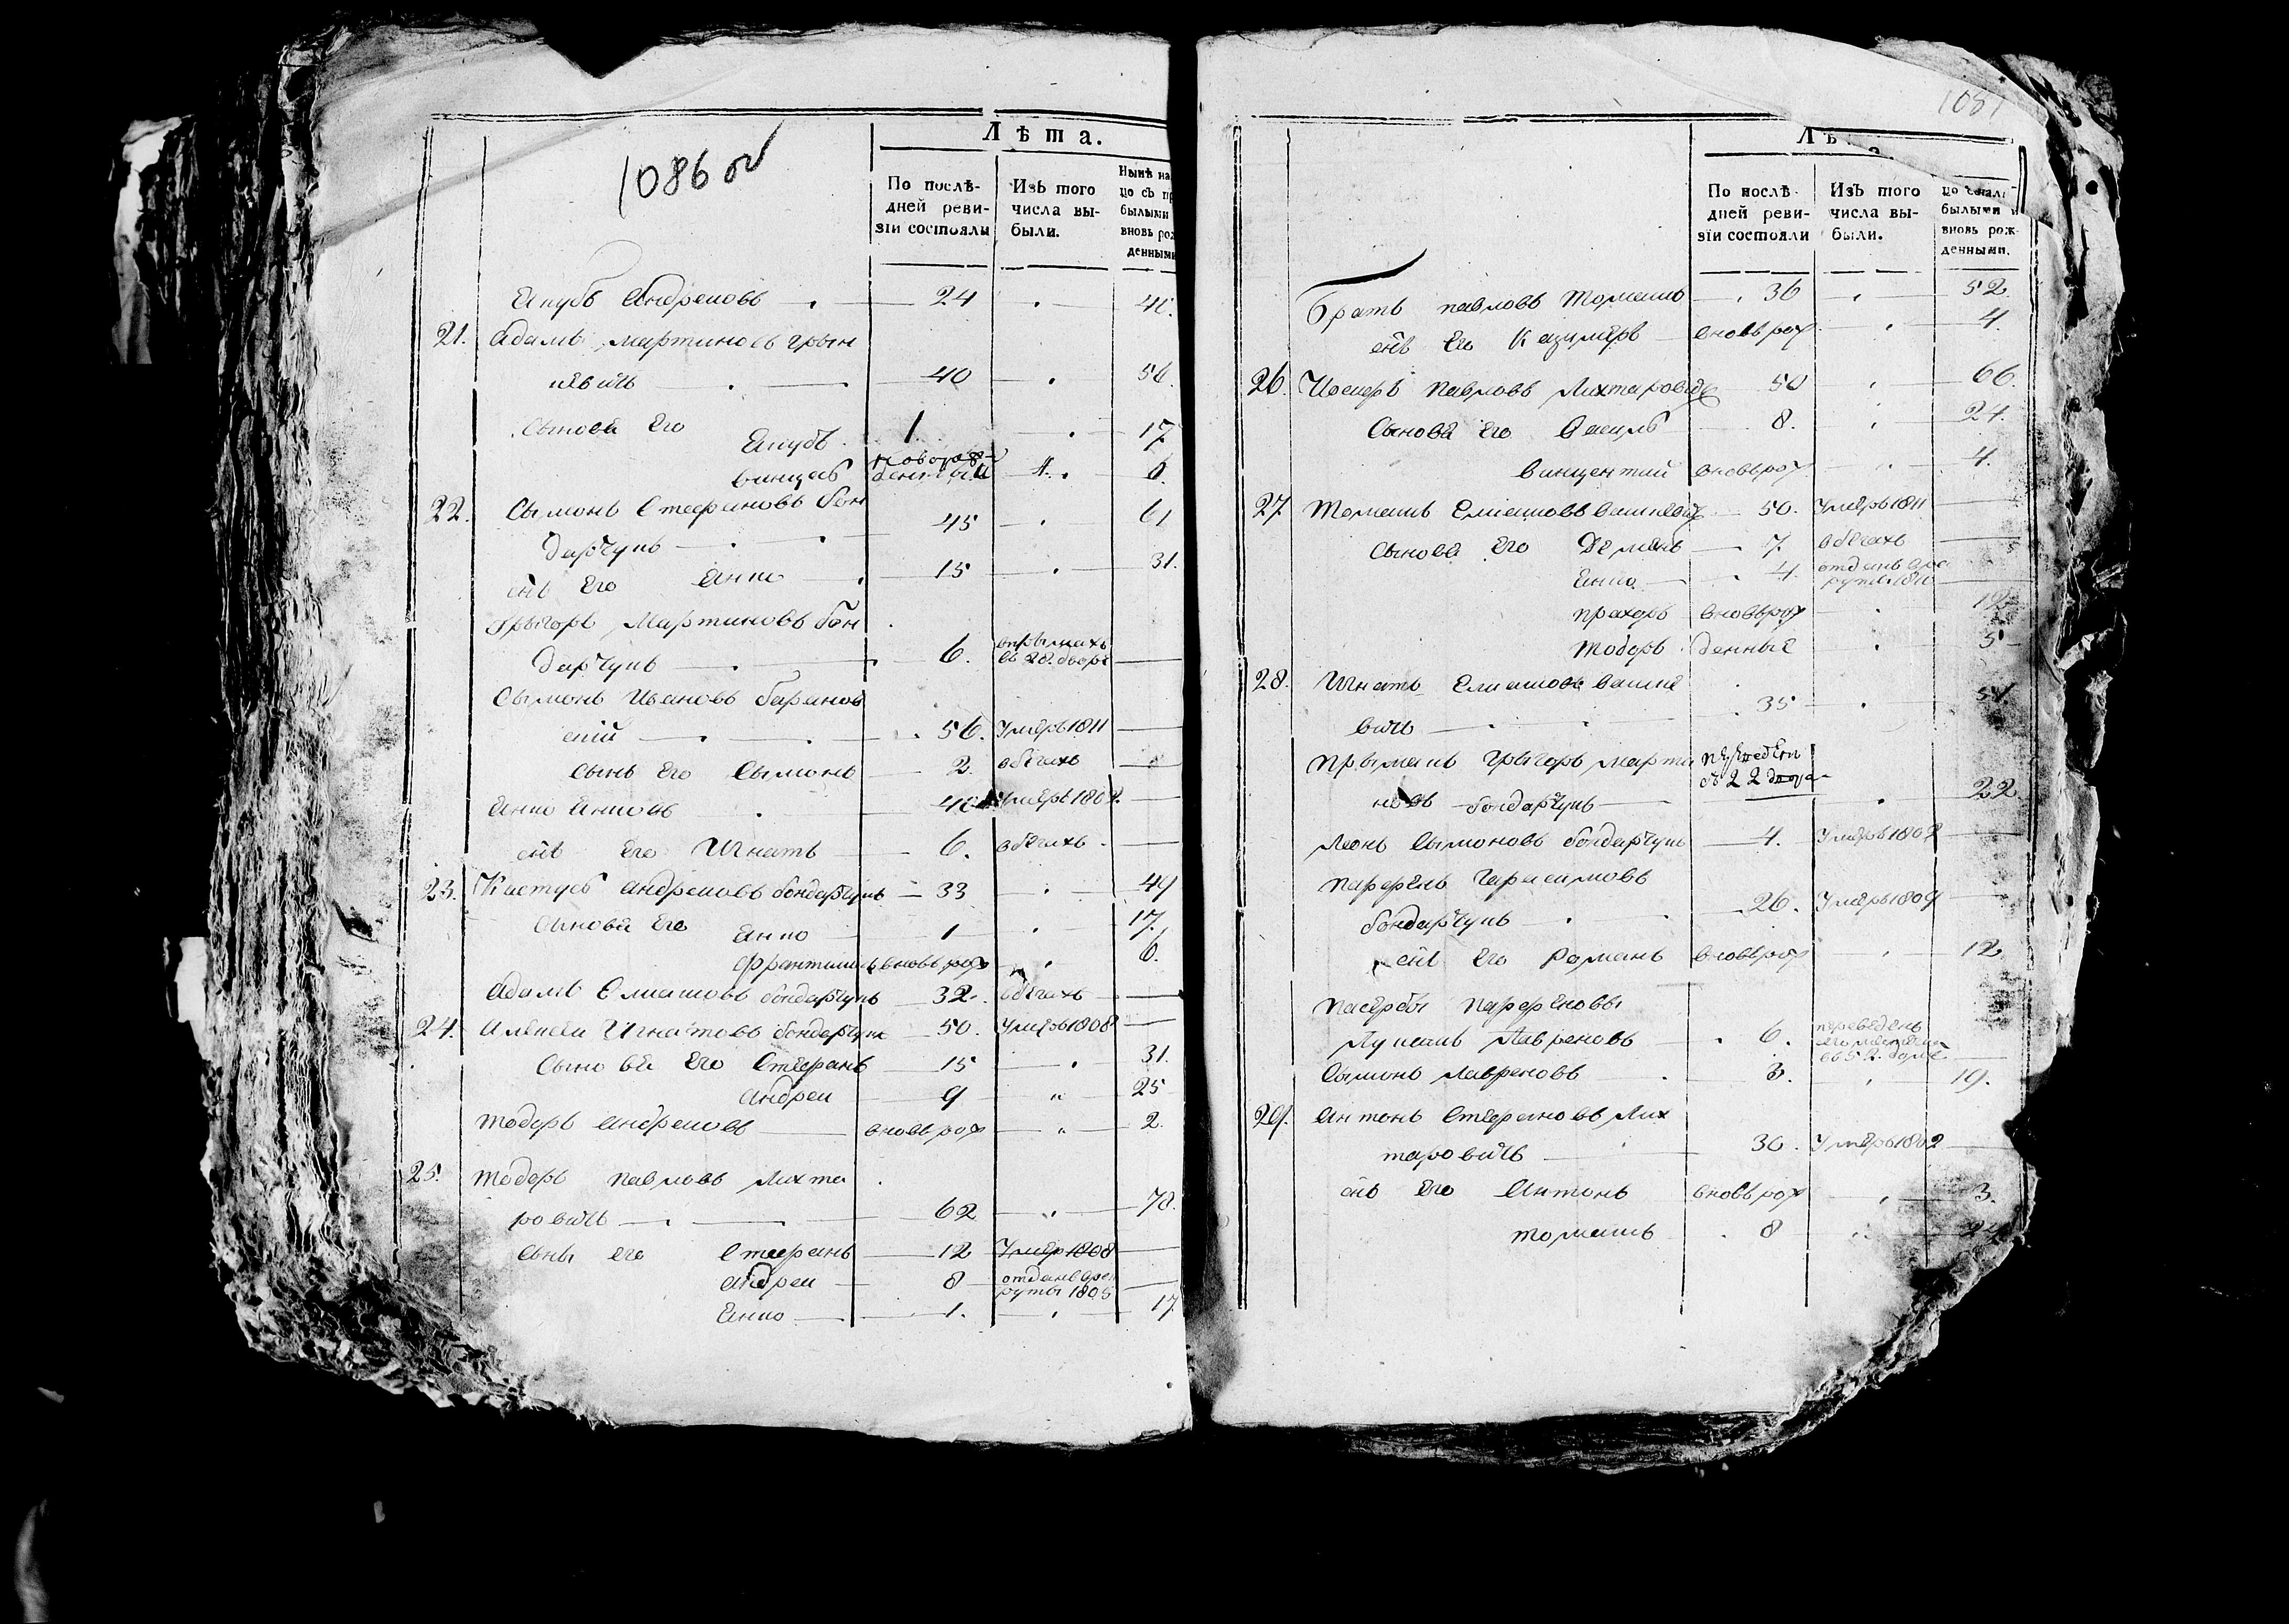 1086 об
Лѣта.
По послѣ-
дней реви-
зіи состояли
Изъ того
числа вы-
были.
Нынѣ на
цо съ пр
былыми
вновь рож
денными
Якубъ Андреновъ 24 40.
21. Адамъ Мартиновъ Грын
кевичъ 40 56.
Сынове Его Якубъ 1. 17
Винцесъ новорож
денный 6.
22. Сымонъ Стефановъ Бон
дарчукъ 45 61
снъ Его Янко 15 31.
Грыгоръ Мартиновъ Бон
дарчукъ 6. впрымахъ
въ 28. дворѣ
Сымонъ Ивановъ Баранов
скій 56. Умеръ 1811
Сынъ Его Сымонъ 2. вбегахъ
Янко Янковъ 40 Умеръ 1802.
снъ Его Игнатъ 6. вбегахъ
23. Кастусь Андреновъ Бондарчукъ 33 49
Сынове Его Янко 1 17.
Франтишекъ вновь рож 6.
Адамъ Елиашовъ Бондарчукъ 32. вбегахъ
24. Алексей Игнатовъ Бондарчукъ 50. Умеръ 1808
Сынове Его Стефанъ 15 31.
Андреи 9 " 25
Тодоръ Андреновъ вновь рож " 2.
25. Тодоръ Павловъ Лихта
ровичъ 62 " 78.
Сыны его Стефанъ 12 Умеръ 1808
Андреи 8 отданъ врек
руты 1805
Янко 1. 17
1087
По послѣ-
дней реви-
зіи состояли
Изъ того
числа вы-
были.
былыми и
вновь рож-
денными.
Братъ Павловъ Томашъ 36 52.
снъ Его Казимеръ вновь рож 4.
26. Иосифъ Павловъ Лихтаровичъ 50 66.
Сынове Его Василь 8. 24.
Винцентий вновь рож 4.
27 Томашъ Елиашовъ Вашкевичъ 50. Умеръ 1811
Сынове Его Демянъ 7. вбегахъ
Янко 4. отданъ врек
руты 1811
Прахоръ вновь рож 12
Тодоръ денные 5
28. Игнатъ Елиашовъ Вашке
вичъ 35 51
Прымакъ Грыгоръ Марти переведен
съ 22 двора
новъ Бондарчукъ 22.
Леонъ Сымоновъ Бондарчукъ 4. Умеръ 1802
Парфенъ Гарасимовъ
Бондарчукъ 26. Умеръ 1809
снъ Его Романъ вновь рож 12
Пасербы Парфеновы
Лукашъ Лавреновъ 6. переведенъ
Сымонъ Лавреновъ 3. 19.
29. Антонъ Стефановъ Лих
таровичъ 30. Умеръ 1802
снъ Его Антонъ вновь рож 3.
Томашъ 8 24